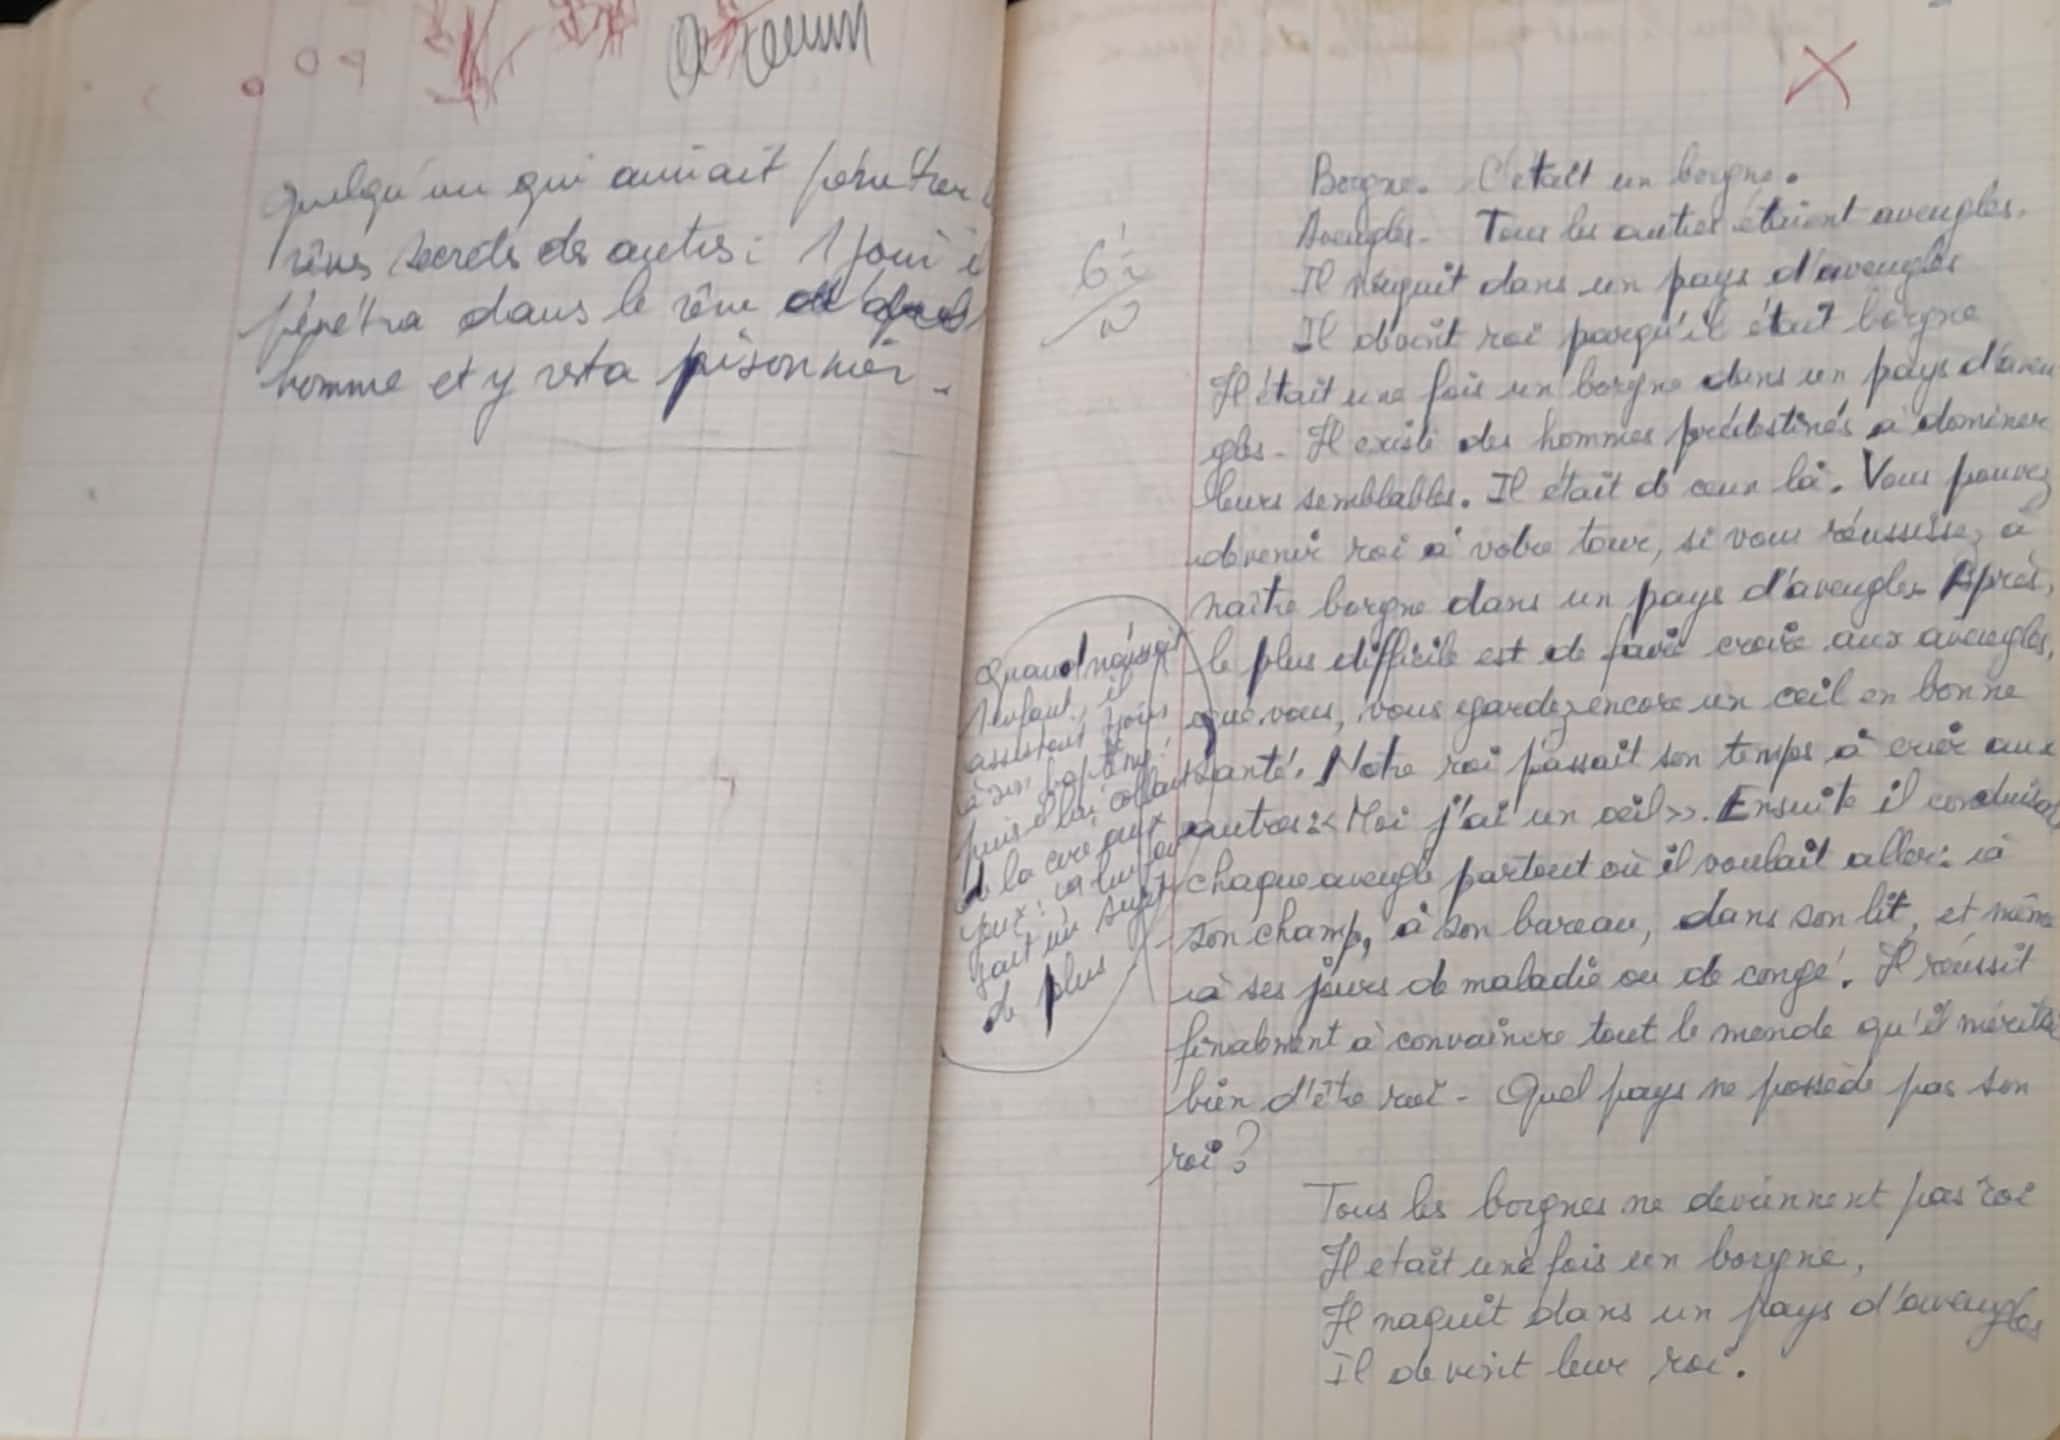 Quelqu'un qui aimait pénétrer
rêves secrets des autres : 1 jour i
pénétra dans le rêve
homme et y resta prisonnier.
Borgne. C'était un borgne.
Aveugles. Tous les autres étaient aveugles.
Il naquit dans un pays d'aveugles
Il devint roi parqu'il était borgne
Il était une fois un borgne dans un pays d'aveu
gles. Il existe des hommes prédestinés à dominer
leurs semblables. Il était de ceux là. Vous pouvez
devenir roi à votre tour, si vous réussissez à
naître borgne dans un pays d'aveugles. Après,
le plus difficile est de faire croire aux aveugles,
que vous, vous gardez encore un œil en bonne
santé. Notre roi passait son temps à crier aux
autres : « Moi j'ai un œil ». Ensuite il conduisa
chaque aveugle partout où il voulait aller : à
son champ, à son bureau, dans son lit, et même
à ses jours de maladie ou de congé. Il réussit
finalement à convaincre tout le monde qu'il mérita
bien d'être roi. Quel pays ne possède pas son
roi ?
Tous les borgnes ne deviennent pas roi
Il était une fois un borgne,
Il naquit dans un pays d'aveugles
Il devint leur roi.
Quand naissait
1 enfant, il
assistait
à son baptême
puis lui collait
de la cire aux
yeux :
fait un sujet
de plus